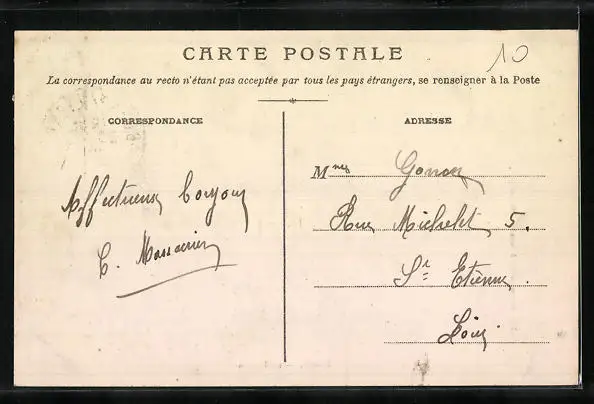 CARTE POSTALE
10
La correspondance au recto n'étant pas acceptée par tous les pays étrangers, se renseigner à la Poste
CORRESPONDANCE
ADRESSE
Affectueux bonjour
Mmes Gonon
Rue Michelet 5.
St Etienne.
Loire